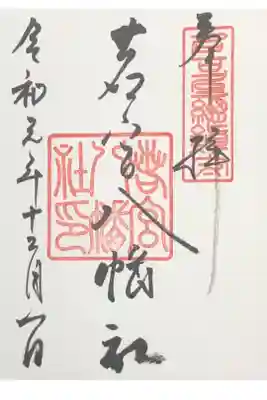 奉拝
若宮八幡社
若宮八幡社印
令和元年十二月一日